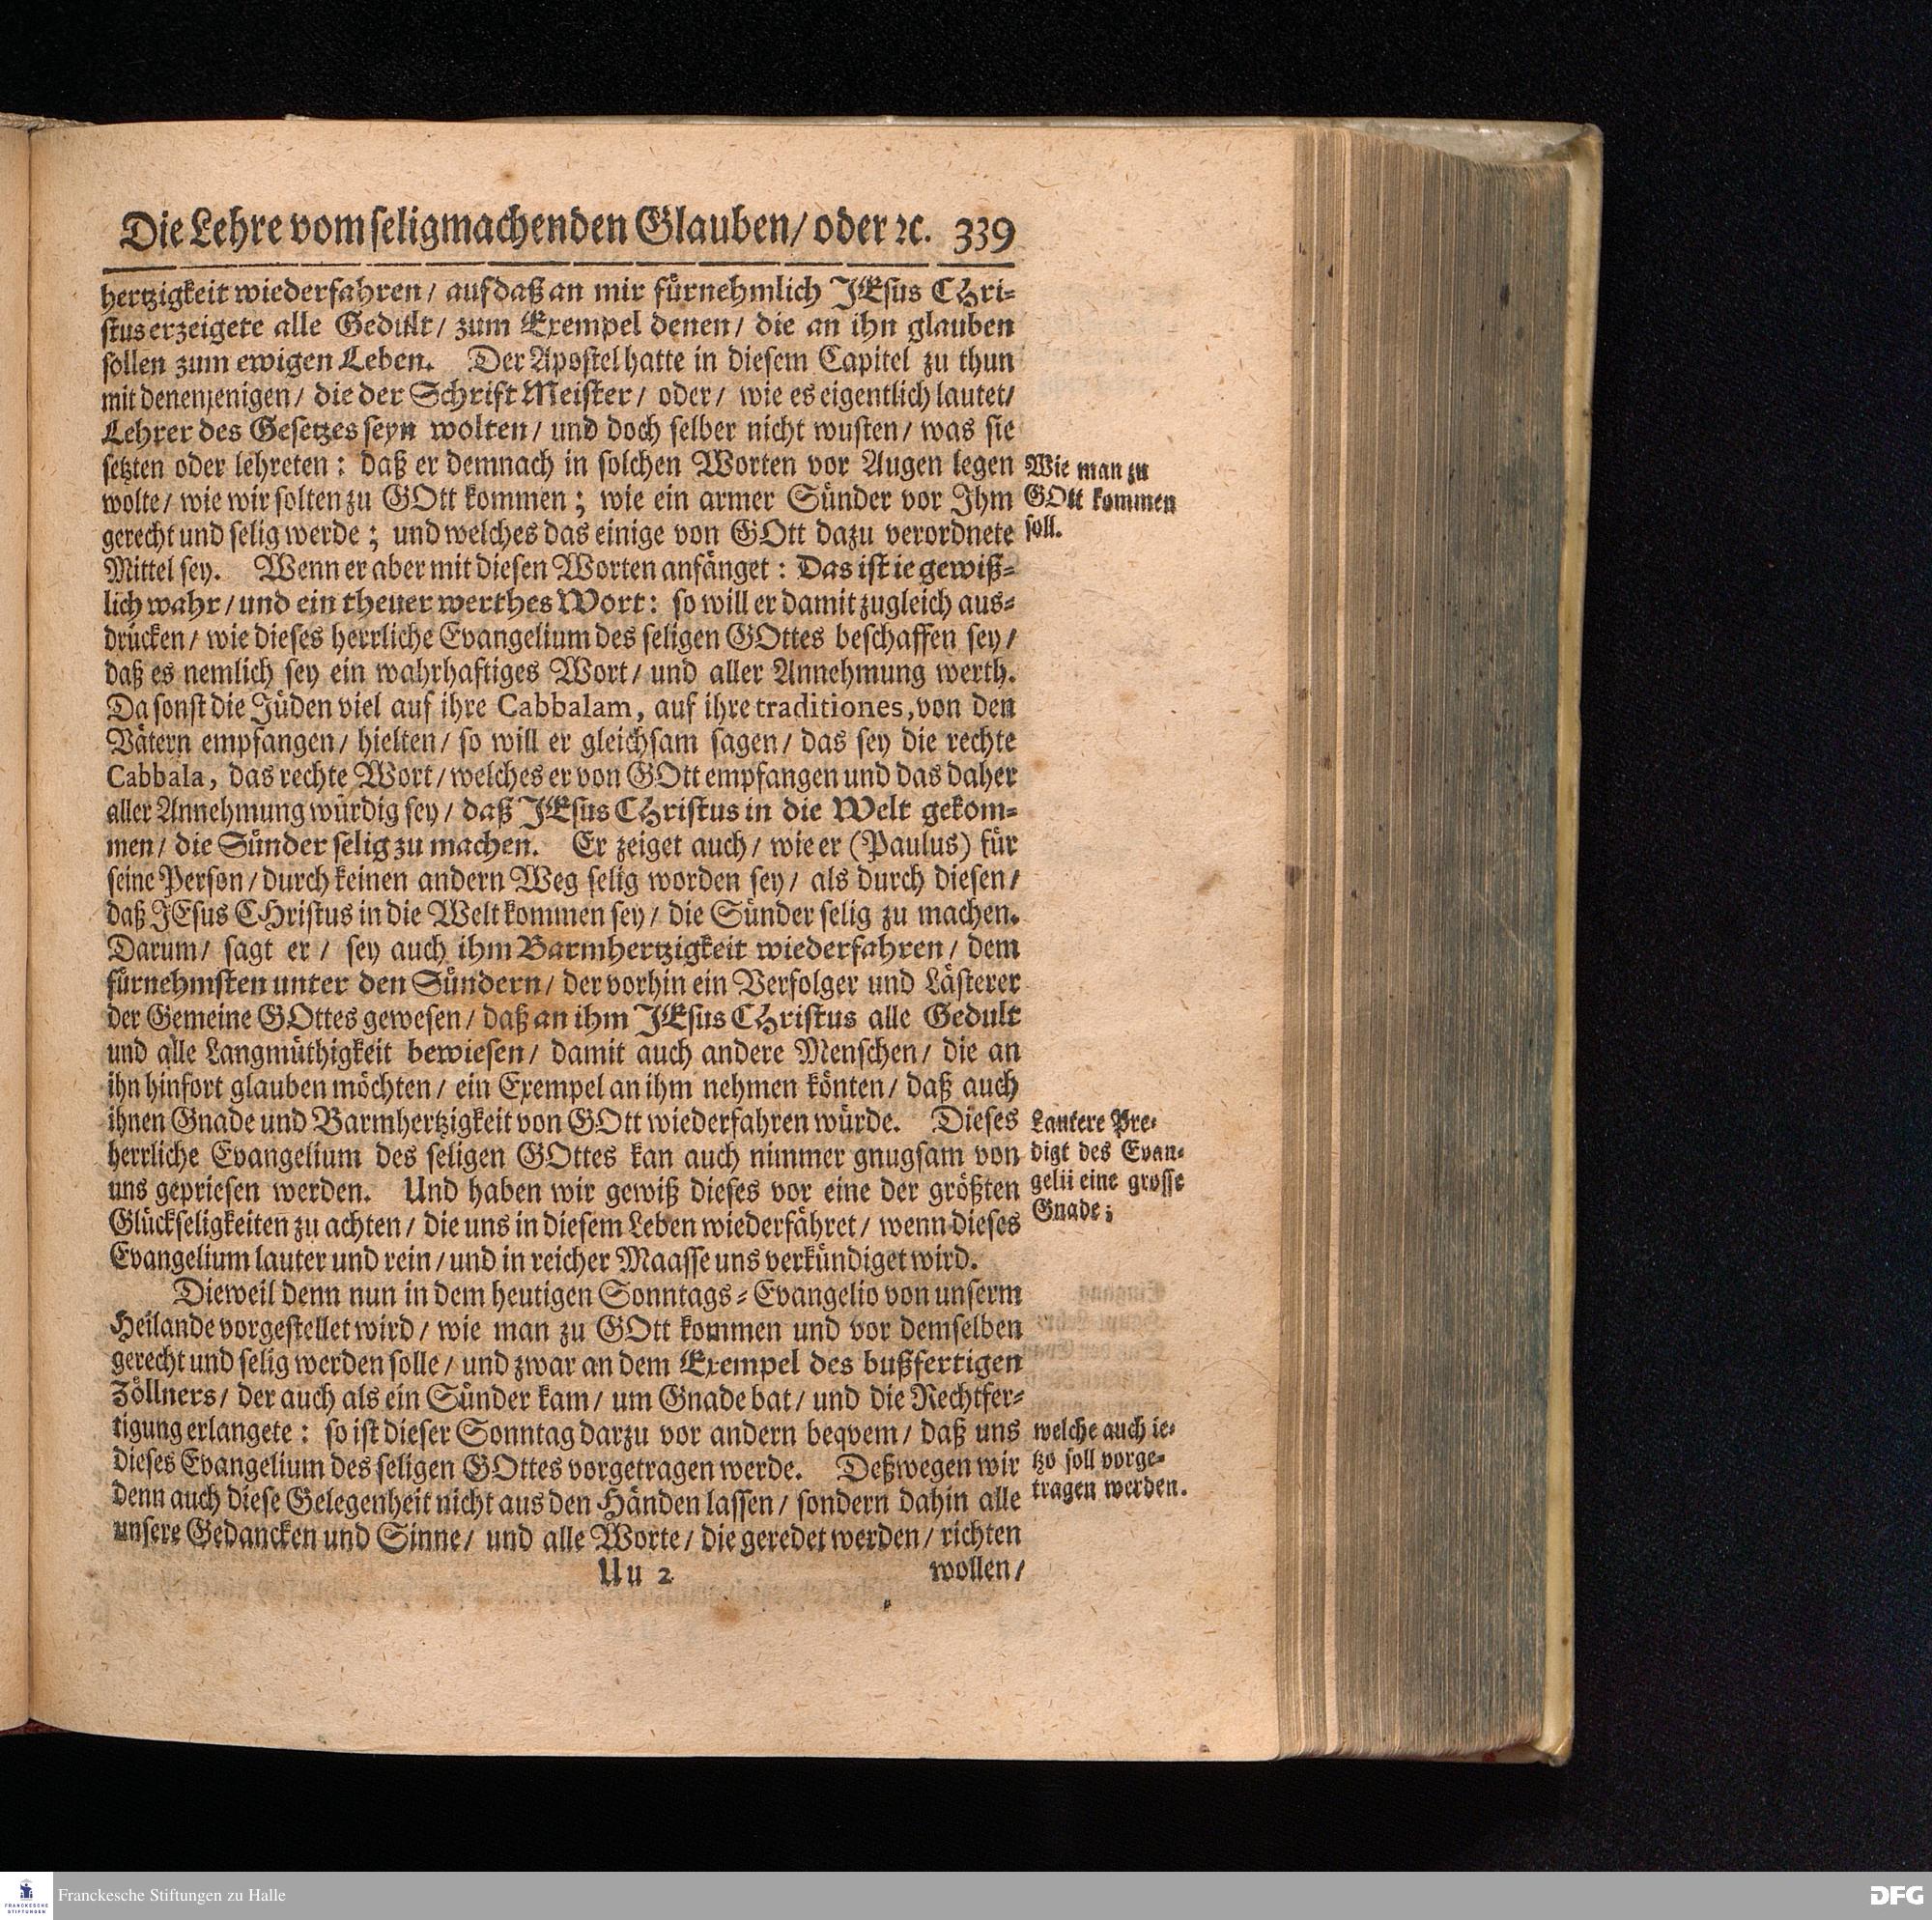 Die Lehre vom seligmachenden Glauben/ oder ꝛc. 339
hertzigkeit wiederfahren/ auf daß an mir fürnehmlich JEsus Chri-
stus erzeigete alle Gedult/ zum Exempel denen/ die an ihn glauben
sollen zum ewigen Leben. Der Apostel hatte in diesem Capitel zu thun
mit denenjenigen/ die der Schrift Meister/ oder/ wie es eigentlich lautet/
Lehrer des Gesetzes seyn wolten/ und doch selber nicht wusten/ was sie
setzten oder lehreten: daß er demnach in solchen Worten vor Augen legen
wolte/ wie wir solten zu GOtt kommen; wie ein armer Sünder vor Ihm
gerecht und selig werde; und welches das einige von GOtt dazu verordnete
Mittel sey. Wenn er aber mit diesen Worten anfänget: Das ist ie gewiß-
lich wahr/ und ein theuer werthes Wort: so will er damit zugleich aus-
drücken/ wie dieses herrliche Evangelium des seligen GOttes beschaffen sey/
daß es nemlich sey ein wahrhaftiges Wort/ und aller Annehmung werth.
Da sonst die Jüden viel auf ihre Cabbalam, auf ihre traditiones, von den
Vätern empfangen/ hielten/ so will er gleichsam sagen/ das sey die rechte
Cabbala, das rechte Wort/ welches er von GOtt empfangen und das daher
aller Annehmung würdig sey/ daß JEsus CHristus in die Welt gekom-
men/ die Sünder selig zu machen. Er zeiget auch/ wie er (Paulus) für
seine Person/ durch keinen andern Weg selig worden sey/ als durch diesen/
daß JEsus CHristus in die Welt kommen sey/ die Sünder selig zu machen.
Darum/ sagt er/ sey auch ihm Barmhertzigkeit wiederfahren/ dem
fürnehmsten unter den Sündern/ der vorhin ein Verfolger und Lästerer
der Gemeine GOttes gewesen/ daß an ihm JEsus CHristus alle Gedult
und alle Langmüthigkeit bewiesen/ damit auch andere Menschen/ die an
ihn hinfort glauben möchten/ ein Exempel an ihm nehmen könten/ daß auch
ihnen Gnade und Barmhertzigkeit von GOtt wiederfahren würde. Dieses
herrliche Evangelium des seligen GOttes kan auch nimmer gnugsam von
uns gepriesen werden. Und haben wir gewiß dieses vor eine der größten
Glückseligkeiten zu achten/ die uns in diesem Leben wiederfähret/ wenn dieses
Evangelium lauter und rein/ und in reicher Maasse uns verkündiget wird.
Dieweil denn nun in dem heutigen Sonntags-Evangelio von unserm
Heilande vorgestellet wird/ wie man zu GOtt kommen und vor demselben
gerecht und selig werden solle/ und zwar an dem Exempel des bußfertigen
Zöllners/ der auch als ein Sünder kam/ um Gnade bat/ und die Rechtfer-
tigung erlangete: so ist dieser Sonntag darzu vor andern beqvem/ daß uns
dieses Evangelium des seligen GOttes vorgetragen werde. Deßwegen wir
denn auch diese Gelegenheit nicht aus den Händen lassen/ sondern dahin alle
unsere Gedancken und Sinne/ und alle Worte/ die geredet werden/ richten
Uu 2 wollen/
Wie man zu
GOtt kommen
soll.
Lautere Pre-
digt des Evan-
gelii eine grosse
Gnade;
welche auch ie-
tzo soll vorge-
tragen werden.
FRANCKESCHE
STIFTUNGEN
Franckesche Stiftungen zu Halle
DFG